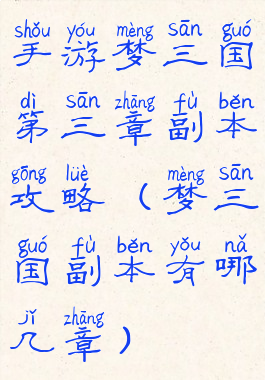 shǒu yóu mèng sān guó
手游梦三国
dì sān zhāng fù běn
第三章副本
gōng lüè mèng sān
攻略（梦三
guó fù běn yǒu nǎ
国副本有哪
jǐ zhāng
几章）